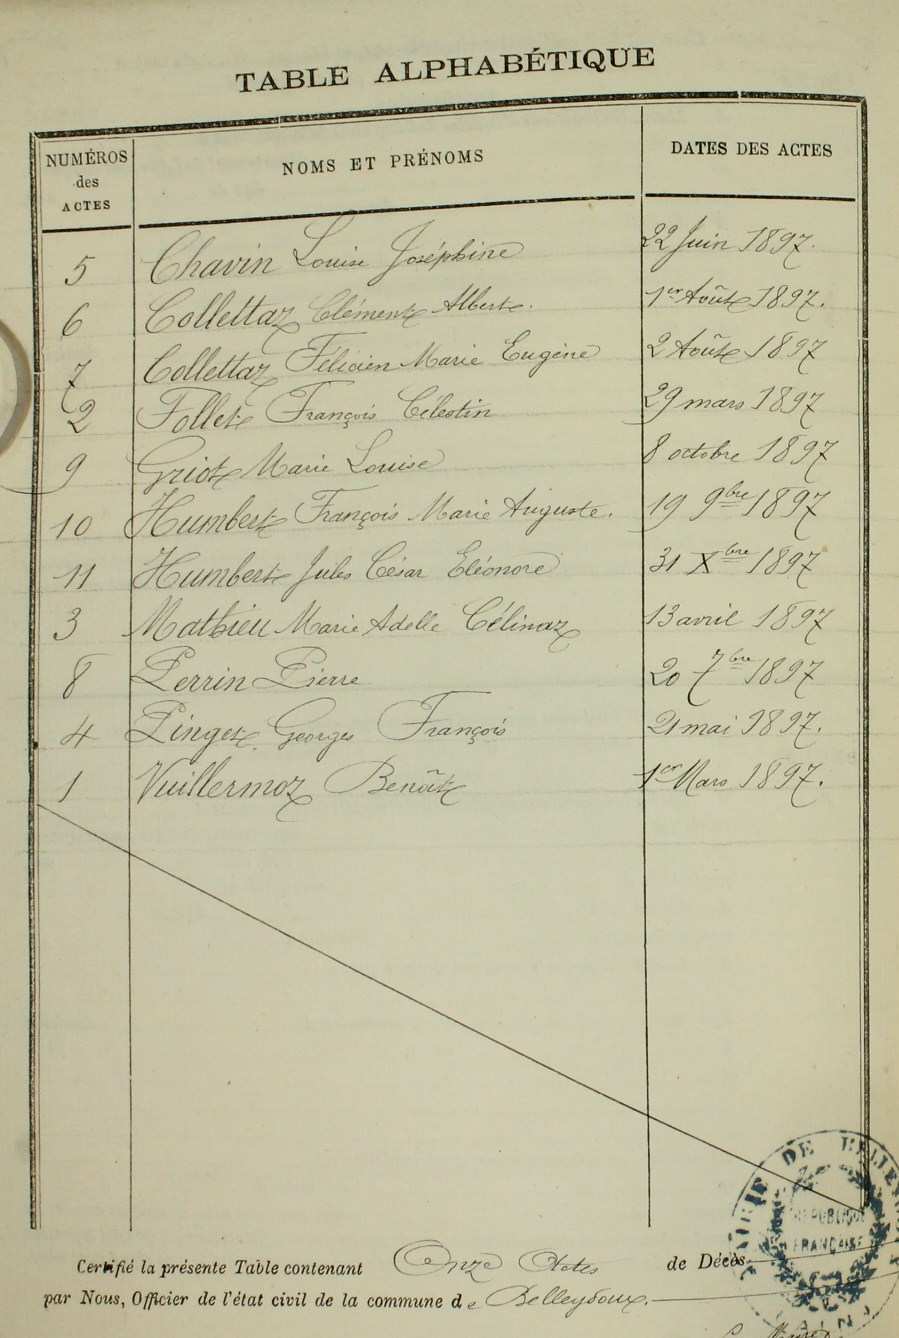 TABLE ALPHABÉTIQUE
NUMÉROS des ACTES NOMS ET PRÉNOMS DATES DES ACTES
5 Chavin Louise Joséphine 22 Juin 1897.
6 Collettaz Clément Albert. 1er Août 1897.
7 Collettaz Félicien Marie Eugène 2 Août 1897
2 Follet François Célestin 29 mars 1897
9 Griot Marie Louise 8 octobre 1897
10 Humbert François Marie Auguste. 19 9bre 1897
11 Humbert Jules César Eléonore 31 Xbre 1897
3 Mathieu Marie Adelle Célinaz 13 avril 1897
8 Perrin Pierre 20 7bre 1897
4 Pinget Georges François 21 mai 1897.
1 Vuillermoz Benoît 1er Mars 1897.
MAIRIE DE BELLEY
RÉPUBLIQUE
FRANÇAISE
Certifié la présente Table contenant Onze Actes de Décès
par Nous, Officier de l'état civil de la commune de Belleydoux.